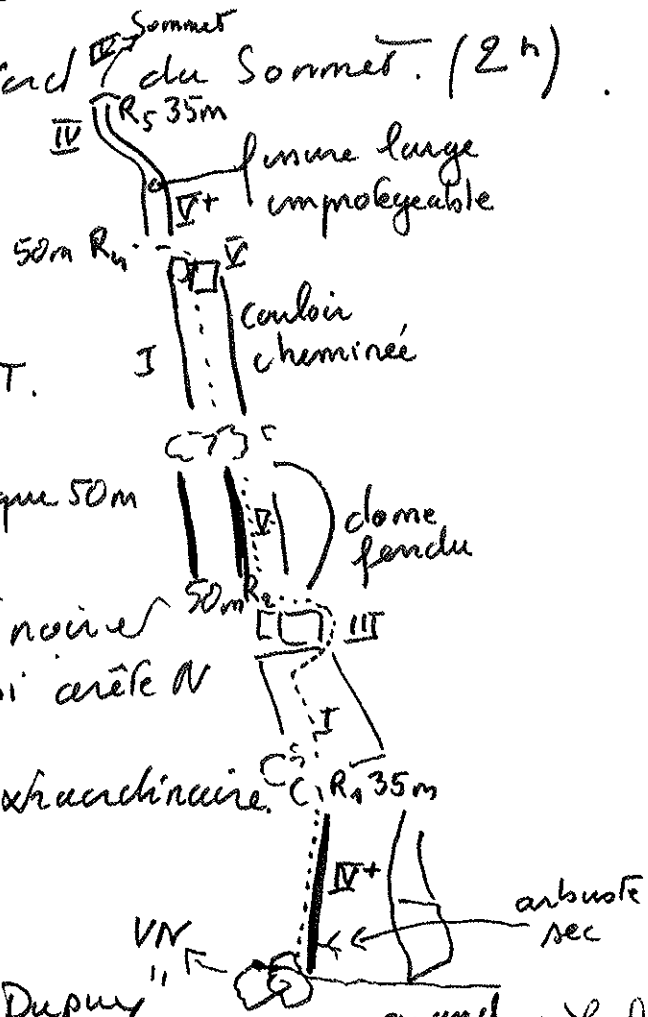 Sommet
V-
du Sommet. (2h).
R5 35m
IV
fissure large
improtégeable
V+
50m R4
V
couloir
cheminée
I
T.
que 50m
V
dome
fendu
50m R2
noires
III
arête N
I
extraordinaire.
R1 35m
IV+
arbuste
sec
VN
Dupuy"